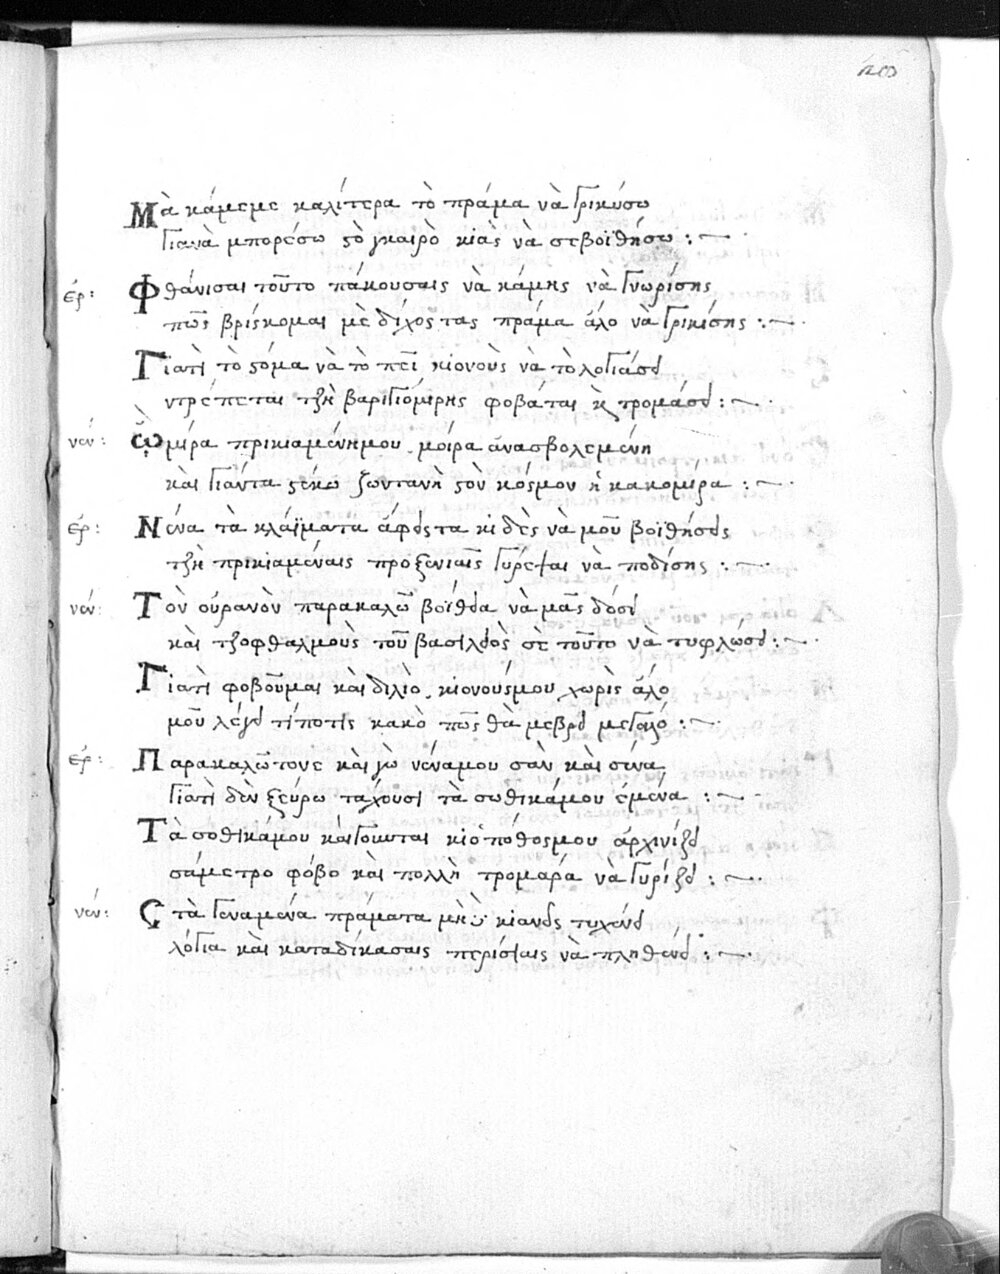 Μὰ κάμεμε καλίτερα τὸ πράμα νὰ γρικύσω
γιανὰ μπορέσω ςὸ γκαιρὸ κιὰς νὰ σεβοϊθήσω :~
ἐρ: Φθάνισαι τοῦτο πάκουσαις νὰ κάμης νὰ γνωρίσης
πῶς βρίσκομαι μὲ δίχος τας πράμα ἄλο νὰ γρικίσης :~
Γιατὶ τὸ ςόμα νὰ τὸ πεῖ κιονοὺς νὰ τὸ λογιάσει
ντρέπεται τζὴ βαριγιόμιρης φοβάται κ τρομάσει :~
νέν: Ὢ μίρα πρικιαμένημου μοίρα ἀνασβολεμένη
καὶ γιάντα ςέκω ζωντανὴ ςὸν κόσμον ἡ κακομίρα :~
ἐρ: Νένα τὰ κλάϊματα ἄφες τα κι δὲς να μοῦ βοϊθήσεις
τζὴ πρικιαμέναις προξενιαῖς γυρέψαι νὰ ποδίσης :~
νέν: Τὸν οὐρανὸν παρακαλῶ βοήθεια νὰ μᾶς δόσει
καὶ τζοφθαλμοὺς τοῦ βασιλειὸς σὲ τοῦτο νὰ τυφλώσει :~
Γιατὶ φοβοῦμαι καὶ διλιὸ κιονούσμου χωρὶς ἄλο
μοῦ λέγει τίποτις κακὸ πῶς θὰ μεβρεῖ μεγάλό :~
ἐρ: Παρακαλῶ τονε καὶ γὼ νέναμου σὰν καὶ σένα
γιατὶ δὲν ξεύρω τάχουσι τὰ σωθικάμου ἐμένα :~
Τὰ σοθικάμου καίγουνται κιὁ πόθοςμου ἀρχινίζει
σάμετρο φόβο καὶ πολλὴ τρομαρά νὰ γυρίζει :~
νέν: Στὰ γεναμένα πράματα μηὼ κιανεὶς τυχένει
λόγια καὶ καταδίκασαις περίσιαις νὰ πληθένει :~